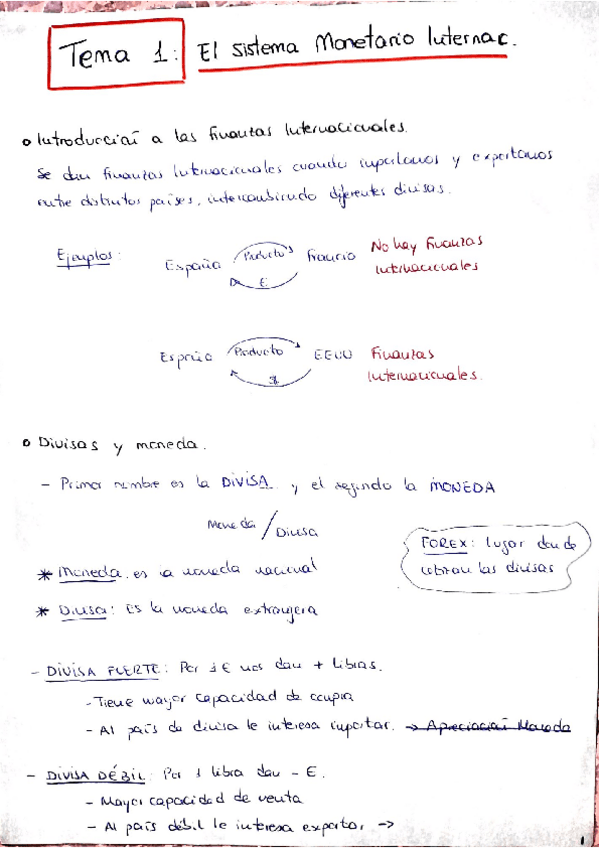 Tema 1: El sistema Monetario Internac.
o Introducción a las finanzas Internacionales.
Se dan finanzas Internacionales cuando importamos y exportamos
entre distintos países, intercambiando diferentes divisas.
Ejemplos: España Producto Francia No hay finanzas
€ internacionales
España Producto EEUU Finanzas
$ Internacionales.
o Divisas y moneda.
- Primer nombre es la DIVISA y el segundo la MONEDA
Moneda / Divisa
FOREX: lugar donde
cotizan las divisas
* Moneda: es la moneda nacional
* Divisa: Es la moneda extranjera
- DIVISA FUERTE: Por 1 € nos dan + libras.
- Tiene mayor capacidad de compra
- Al país de divisa le interesa importar. → Apreciación Moneda
- DIVISA DÉBIL: Por 1 libra dan - €.
- Mayor capacidad de venta
- Al país débil le interesa exportar →
1